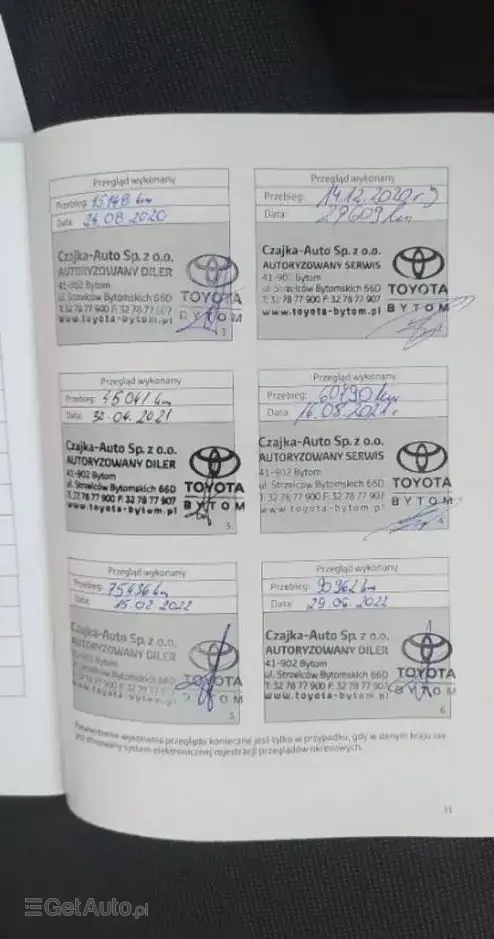 Przegląd wykonany
Przebieg: 15148 km
Data: 24.08.2020
Czajka-Auto Sp. z o.o.
AUTORYZOWANY DILER
41-902 Bytom
ul. Strzelców Bytomskich 66D
T. 32 78 77 900 F. 32 78 77 907
www.toyota-bytom.pl
TOYOTA
BYTOM
1
Przegląd wykonany
Przebieg: 14.12.2020 r
Data: 29609 km
Czajka-Auto Sp. z o.o.
AUTORYZOWANY SERWIS
41-902 Bytom
ul. Strzelców Bytomskich 66D
T. 32 78 77 900 F. 32 78 77 907
www.toyota-bytom.pl
TOYOTA
BYTOM
Przegląd wykonany
Przebieg: 45041 km
Data: .04.2021
Czajka-Auto Sp. z o.o.
AUTORYZOWANY DILER
41-902 Bytom
ul. Strzelców Bytomskich 66D
T. 32 78 77 900 F. 32 78 77 907
www.toyota-bytom.pl
TOYOTA
BYTOM
Przegląd wykonany
Przebieg: 60190 km
Data: 16.08.2021 r
Czajka-Auto Sp. z o.o.
AUTORYZOWANY SERWIS
41-902 Bytom
ul. Strzelców Bytomskich 66D
T. 32 78 77 900 F. 32 78 77 907
www.toyota-bytom.pl
TOYOTA
BYTOM
4
Przegląd wykonany
Przebieg: 75436 km
Data: 15.02.2022
Czajka-Auto Sp. z o.o.
AUTORYZOWANY DILER
41-902 Bytom
ul. Strzelców Bytomskich 66D
T. 32 78 77 900 F. 32 78 77
www.toyota-bytom.pl
TOYOTA
BYTOM
5
Przegląd wykonany
Przebieg: 90962 km
Data: 29.06.2022
Czajka-Auto Sp. z o.o.
AUTORYZOWANY DILER
41-902 Bytom
ul. Strzelców Bytomskich 66D
T. 32 78 77 900 F. 32 78 77 907
www.toyota-bytom.pl
TOYOTA
BYTOM
6
Potwierdzenie wykonania przeglądu konieczne jest tylko w przypadku, gdy w danym kraju nie
jest stosowany system elektronicznej rejestracji przeglądów okresowych.
31
GetAuto.pl